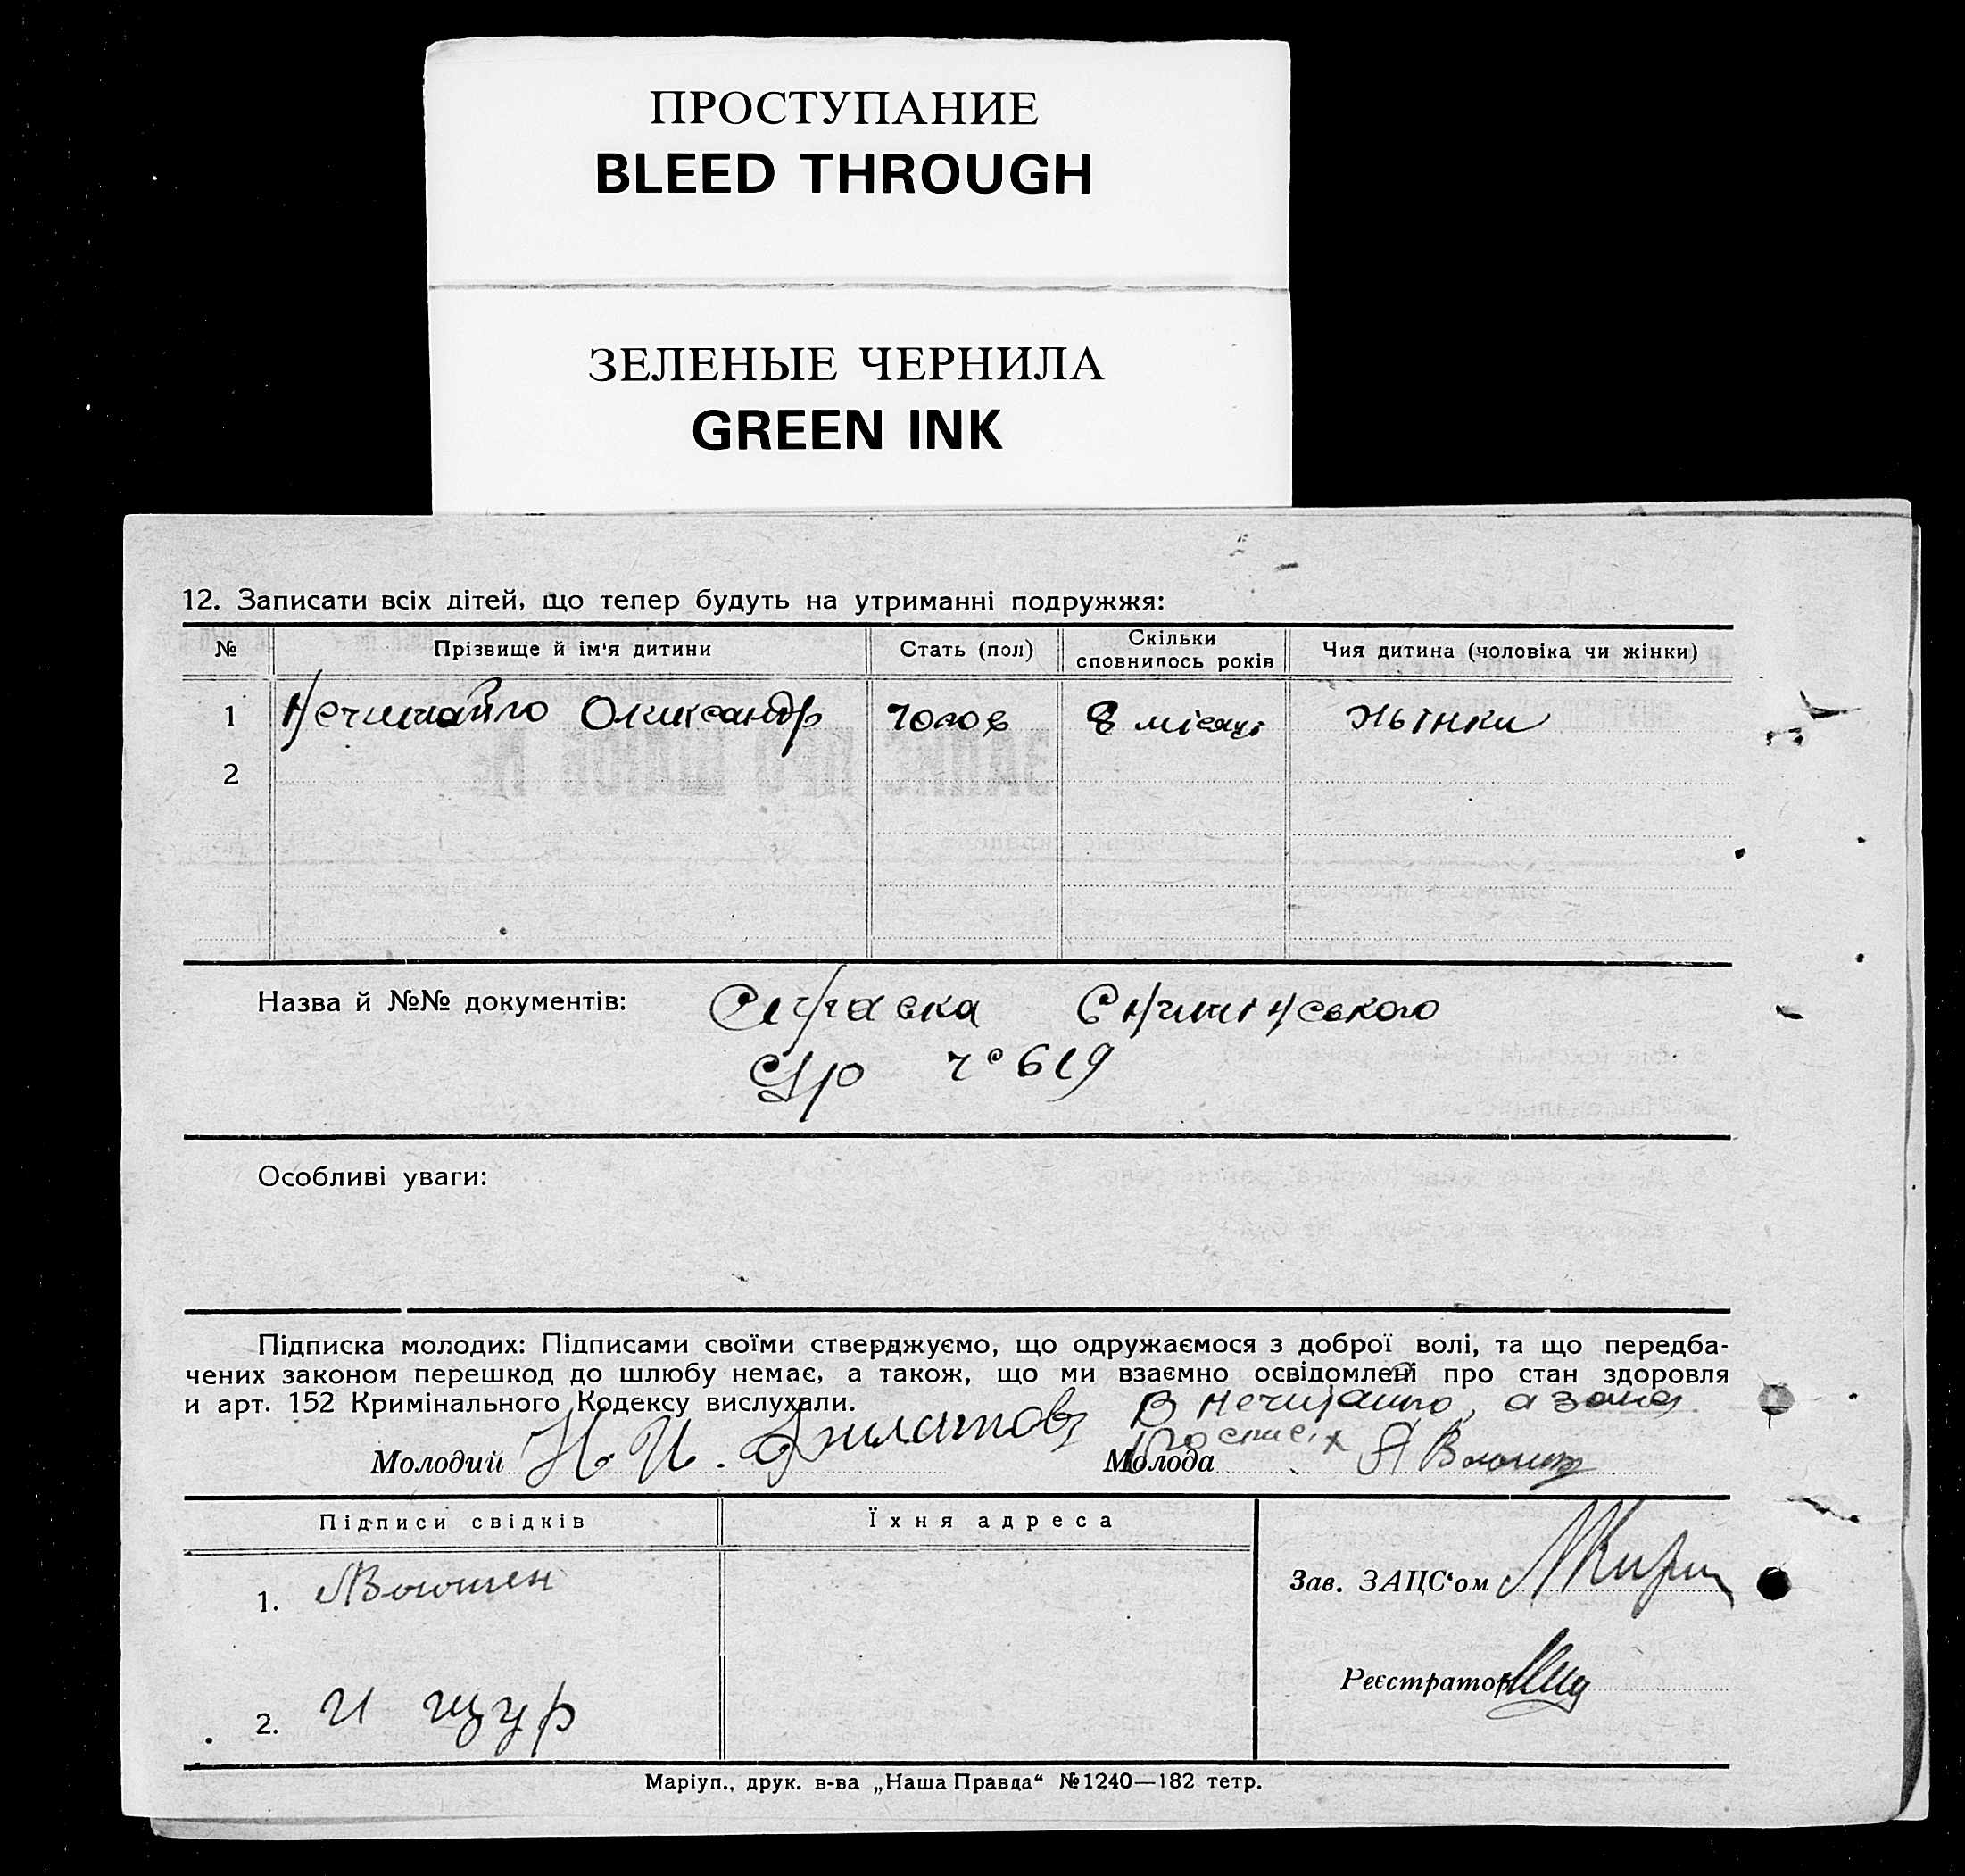 ПРОСТУПАНИЕ
BLEED THROUGH
ЗЕЛЕНЫЕ ЧЕРНИЛА
GREEN INK
12. Записати всіх дітей, що тепер будуть на утриманні подружжя:
№ Прізвище й ім'я дитини Стать (пол) Скільки сповнилось років Чия дитина (чоловіка чи жінки)
1 Нечипайло Олександр чолов 8 місяці жінки
2
Назва й №№ документів:
с/р № 619
Особливі уваги:
Підписка молодих: Підписами своїми стверджуємо, що одружаємося з доброї волі, та що передба-
чених законом перешкод до шлюбу немає, а також, що ми взаємно освідомлені про стан здоровля
и арт. 152 Кримінального Кодексу вислухали.
Молодий Н. И. Филатов Молода
Підписи свідків Їхня адреса
1.
Зав. ЗАЦС'ом
Реєстратор
2. И Щур
Маріуп., друк. в-ва „Наша Правда“ №1240—182 тетр.